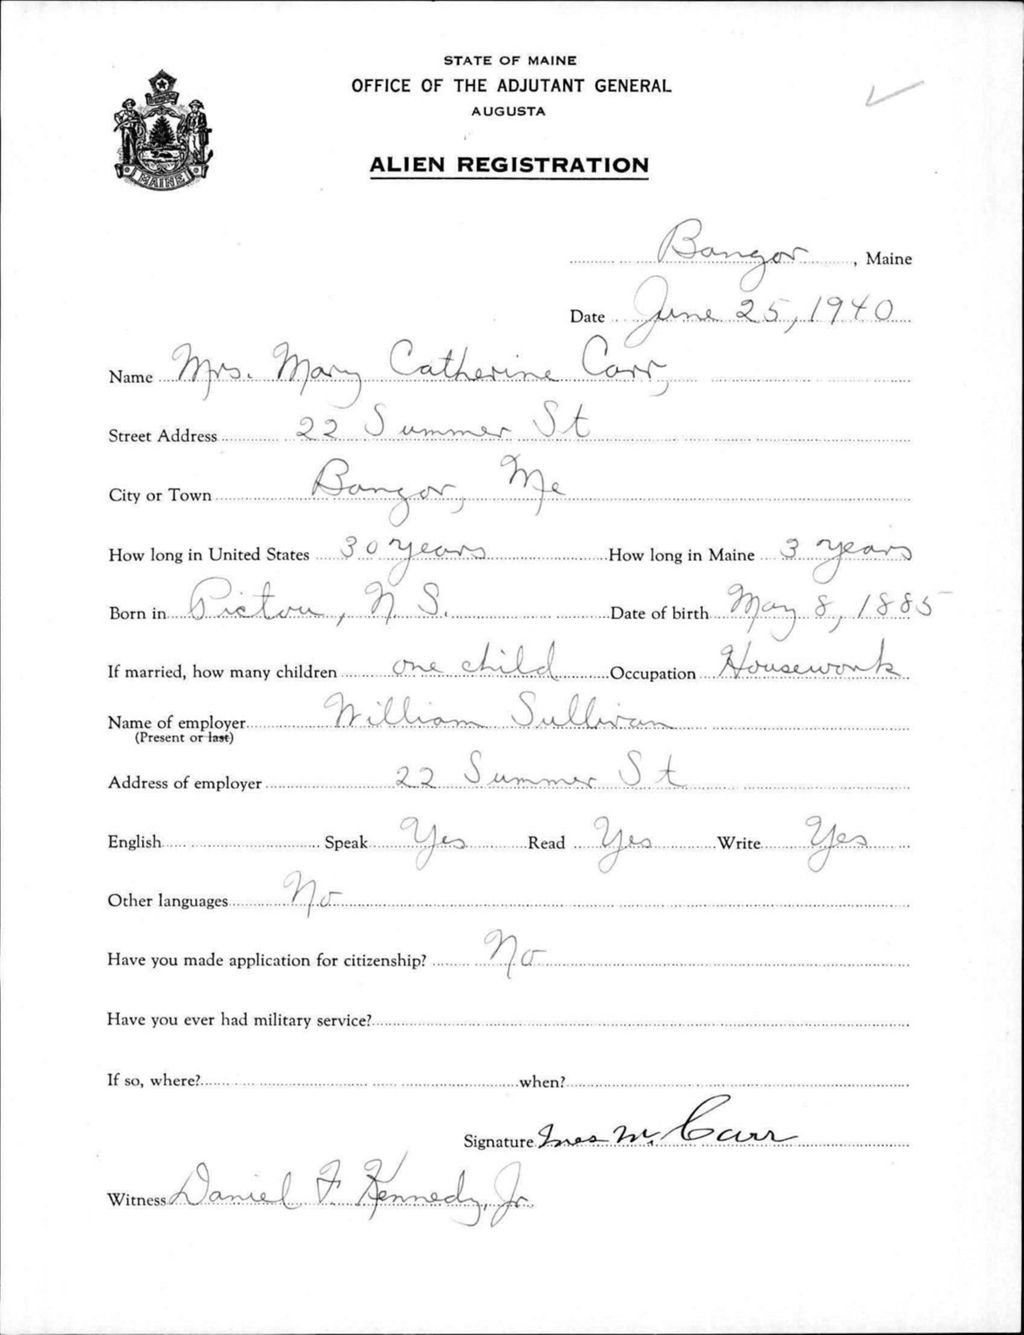 STATE OF MAINE
OFFICE OF THE ADJUTANT GENERAL
AUGUSTA
ALIEN REGISTRATION
MAINE
Bangor, Maine
Date June 25, 1940
Name Mrs. Mary Catherine Carr,
Street Address 22 Summer St
City or Town Bangor, Me
How long in United States 30 years How long in Maine 3 years
Born in Pictou, N. S. Date of birth May 8, 1885
If married, how many children one child Occupation Housework
Name of employer William Sullivan
(Present or last)
Address of employer 22 Summer St
English Speak Yes Read Yes Write Yes
Other languages No
Have you made application for citizenship? No
Have you ever had military service?
If so, where? when?
Signature Mrs M. Carr
Witness Daniel F. Kennedy, Jr.